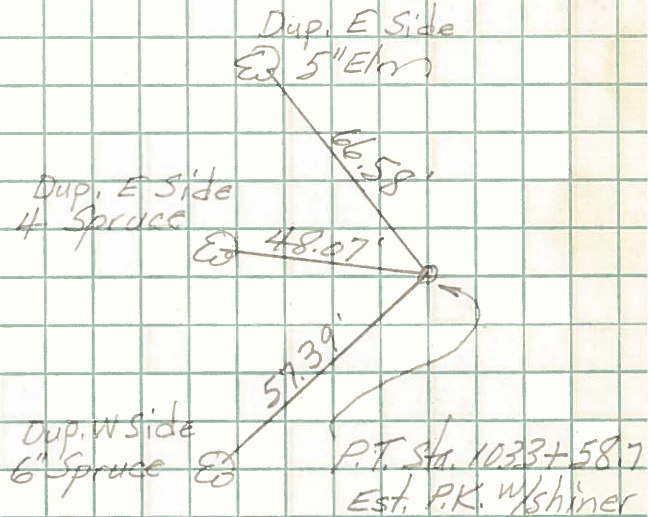 Dup. E Side
5" Elm
66.58'
Dup. E Side
4 Spruce
48.07'
57.39'
Dup. W Side
6" Spruce
P.T. Sta. 1033+58.7
Est. P.K. w/shiner